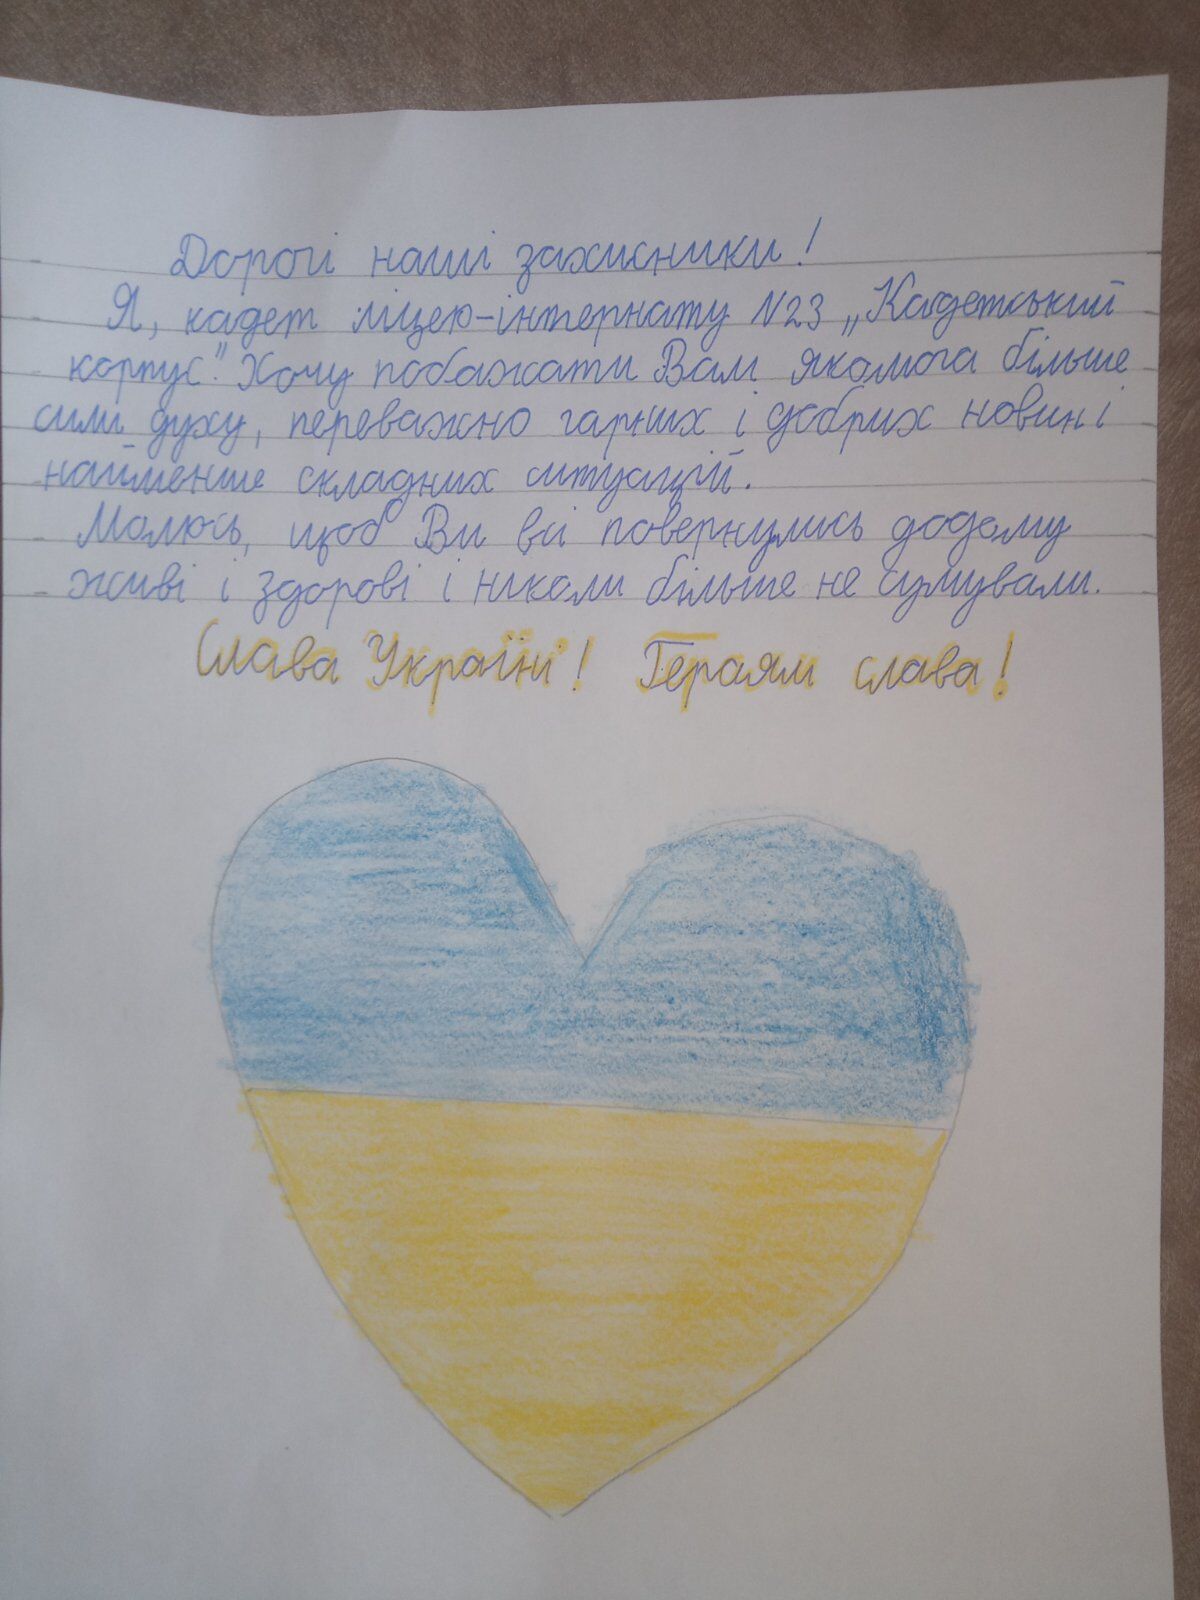 Дорогі наші захисники!
Я, кадет ліцею-інтернату N23 „Кадетський
корпус". Хочу побажати Вам якомога більше
сили духу, переважно гарних і добрих новин і
найменше складних ситуацій.
Молюсь, щоб Ви всі повернулись додому
живі і здорові і ніколи більше не сумували.
Слава Україні! Героям слава!